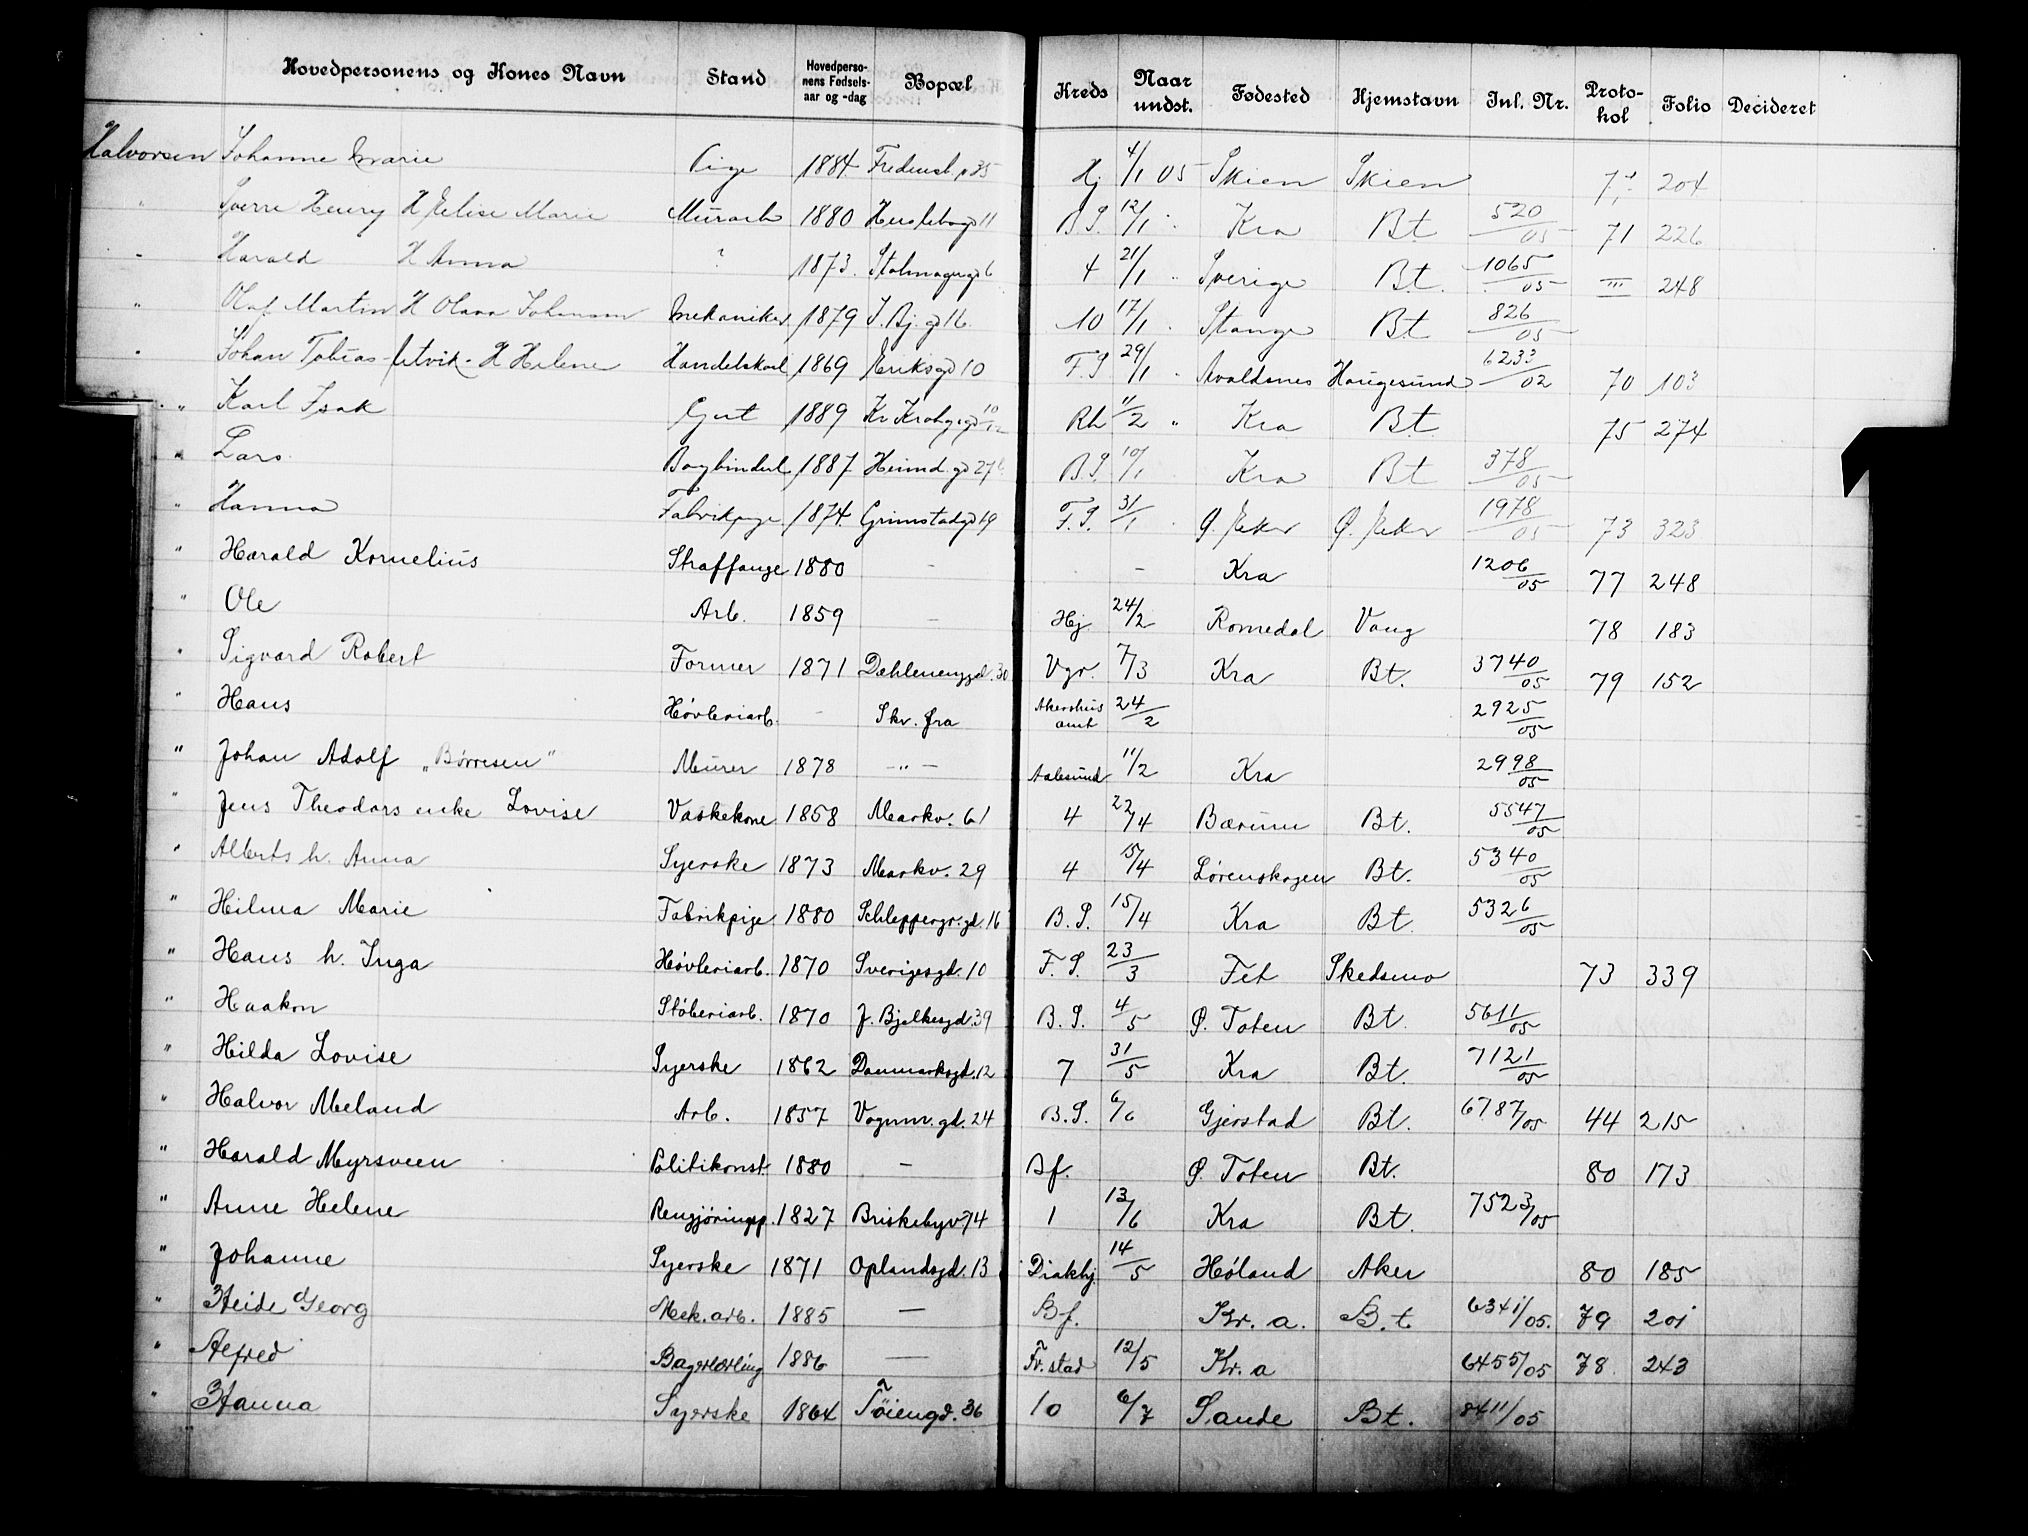 Hovedpersonens og Kones Navn Stand Hovedpersonens Fødselsaar og -dag Bopæl Kreds Naar undst. Fødested Hjemstavn Inl. Nr. Protokol Folio Decideret
Halvorsen Johanne Marie Pige 1884 Fredensb. 35 Hj 4/1 05 Skien Skien 204
" Sverre Henry H Elise Marie Murarb 1880 11 B.S. 12/1 " Kra Bt 520/05 71 226
" Harald H Anna ? 1873 Stolmagergd 6 4 21/1 " Sverige Bt. 1065/05 248
" Olaf Martin H Olava Johansen Mekaniker 1879 J. Bj. gd 16. 10 17/1 " Stange Bt 826/05
" Johan Tobias Utvik - H Helene Handelskarl 1869 Eriksgd 10 F.S 29/1 " Avaldsnes Haugesund 6233/02 70 103
" Karl Isak Gut 1889 Kr Krohgsgd 10/12 Rh 11/2 " Kra Bt. 75 274
" Lars Bogbinderl 1887 Heimd. gd 27 B.S. 10/1 Kra Bt 378/05
" Hanna Fabrikpige 1874 Grimstadgd 19 F.S. 31/1 " Ø. Eker Ø. Eker 1978/05 73 323
" Harald Kornelius Straffange 1880 - - - Kra 1206/05 77 248
" Ole Arb. 1859 - Hj. 24/2 Romedal Vang 78 183
" Sigvard Robert Former 1871 Dahlenenggd. 30 Vgr. 7/3 Kra Bt. 3740/05 79 152
" Hans Høvleriarb. - Skr. fra Akershus amt 24/2 2925/05
" Johan Adolf „Børresen" Murer 1878 -"- Aalesund 11/2 Kra 2998/05
" Jens Theodors enke Lovise Vaskekone 1858 Markv. 61 4 22/4 Bærum Bt. 5547/05
" Alberts h. Anna Syerske 1873 Markv. 29 4 15/4 Lørenskogen Bt. 5340/05
" Hilma Marie Fabrikpige 1880 Schleppegr. gd. 16 B.S. 15/4 Kra Bt. 5326/05
" Hans h. Inga Høvleriarb. 1870 Sverigesgd. 10 F.S. 23/3 Fet Skedsmo 73 339
" Haakon Støberiarb. 1870 J. Bjelkesgd. 39 B.S. 4/5 Ø. Toten Bt. 5611/05
" Hilda Lovise Syerske 1862 Danmarksgd. 12 7 31/5 Kra Bt. 7121/05
" Halvor Meland Arb. 1857 Vognm. gd. 24 B.S. 6/6 Gjerstad Bt. 6787/05 44 215
" Harald Myrsveen Politikonst. 1880 - Bf. Ø. Toten Bt. 80 173
" Anne Helene Rengjøringsp. 1827 Briskebyv 74 1 13/6 Kra Bt. 7523/05
" Johanne Syerske 1871 Oplandsgd. 13 Diakhj. 14/5 Høland Aker 80 185
" Heide Georg Mek. arb. 1885 - Bf. Kr. a. B.t 6341/05. 79 201
" Alfred Bagerlærling 1886 - Fr. stad 12/5 Kr. a 6455/05 78. 243
" Hanna Syerske 1864 Tøiengd. 36 10 6/7 Sande Bt. 8411/05